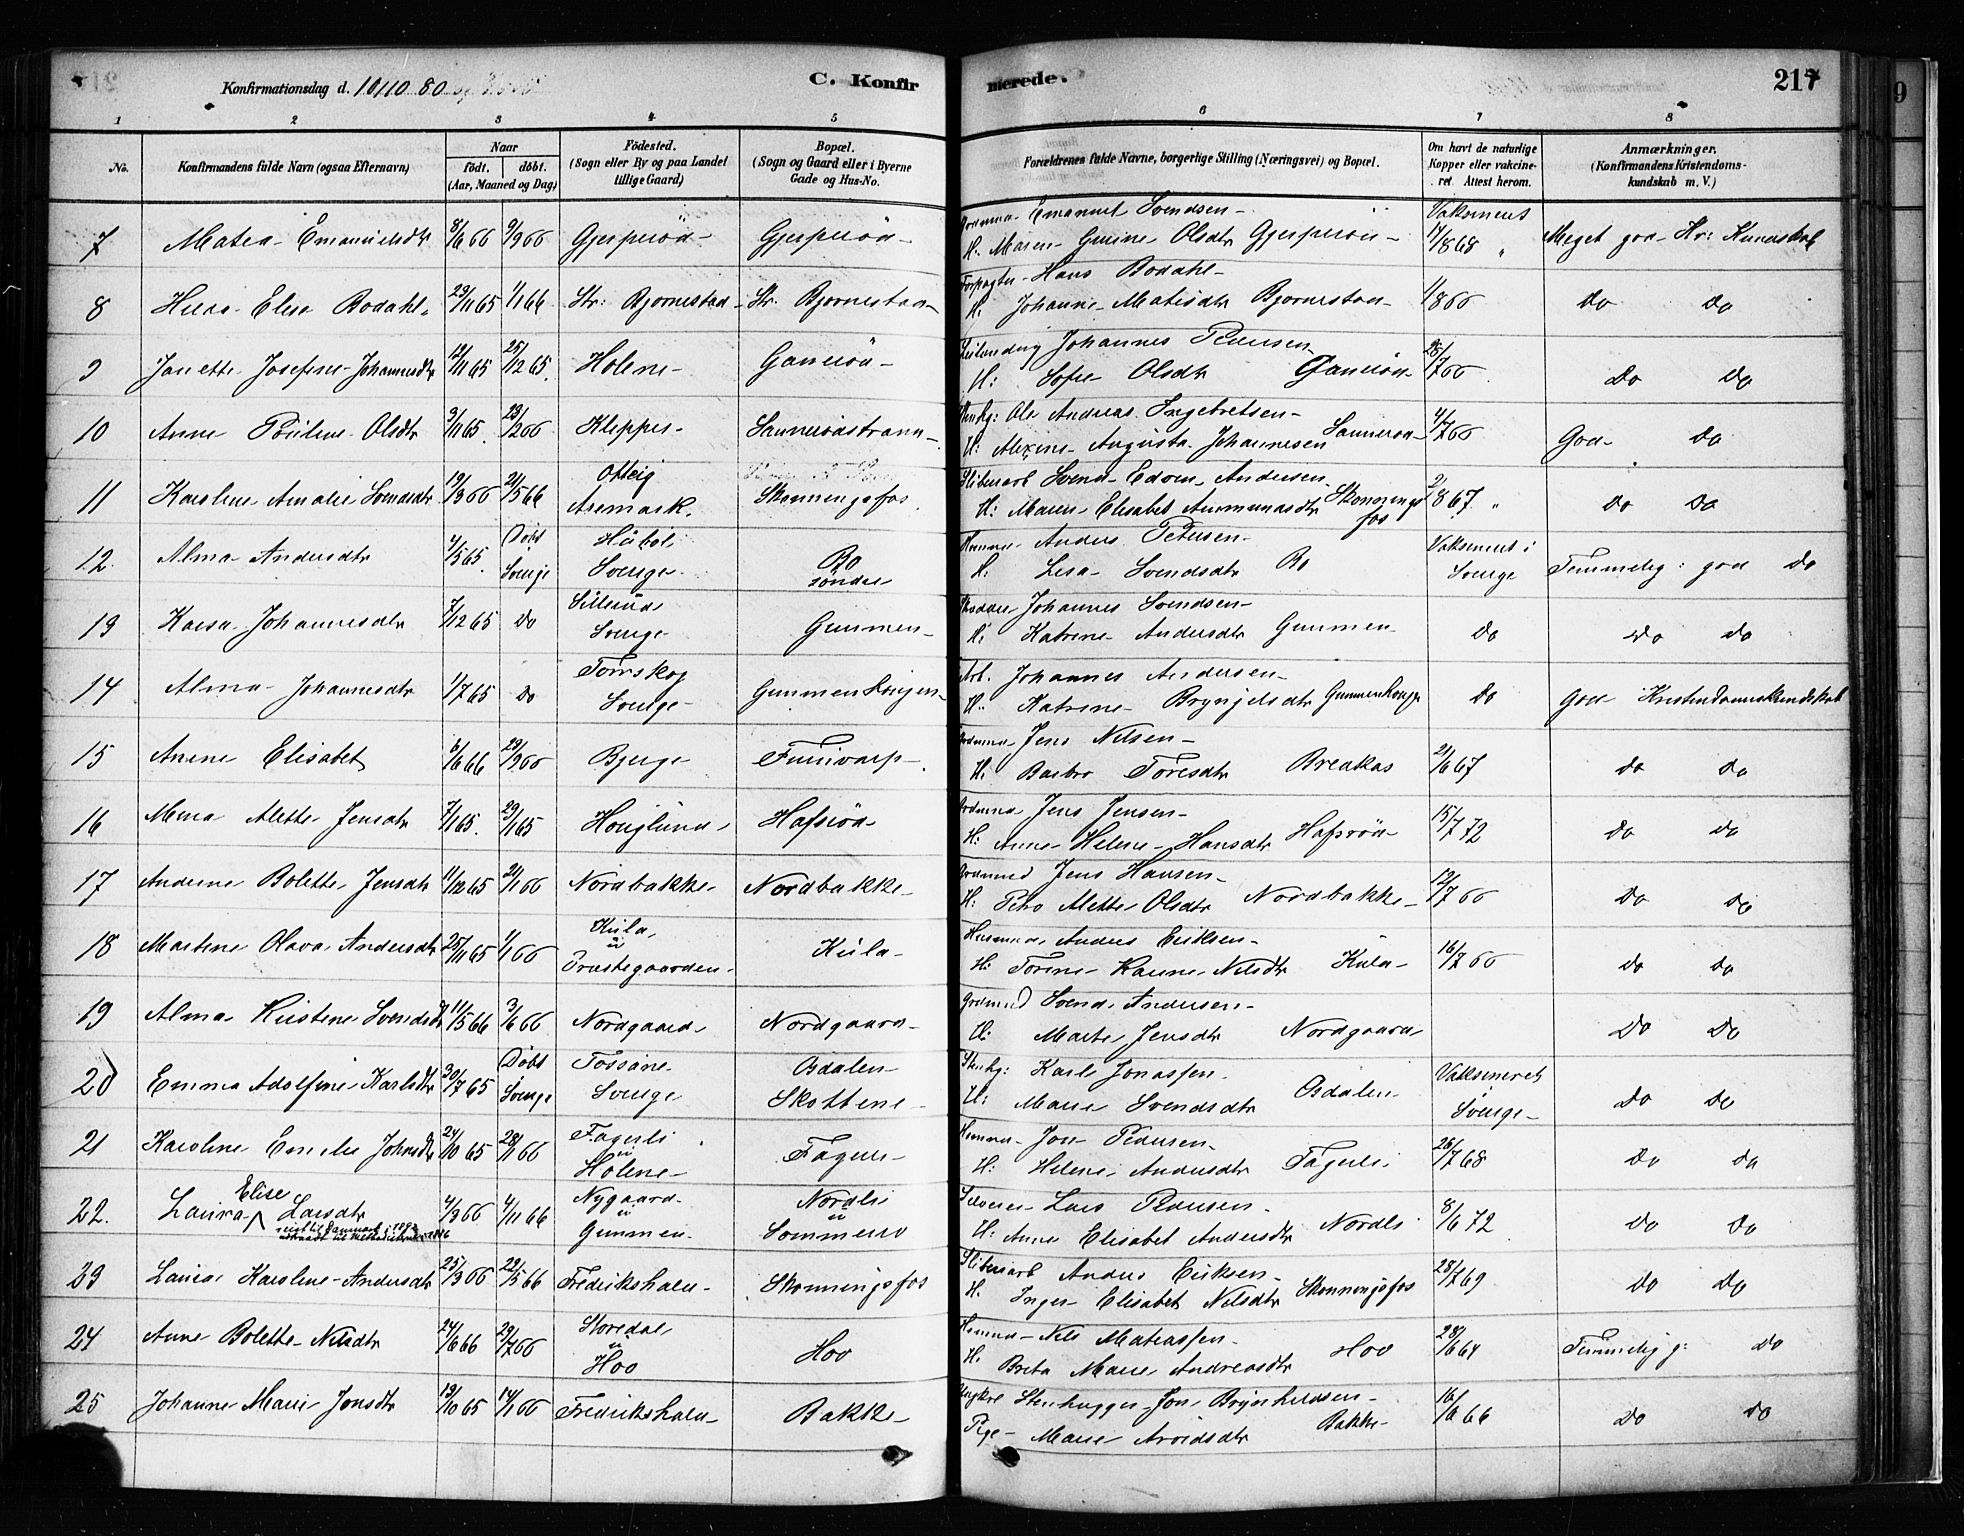 Konfirmationsdag d. 10/10 80
C. Konfirmerede. 217
1 2 3 4 5 6 7 8
No. Konfirmandens fulde Navn (ogsaa Efternavn) Naar født. døbt. (Aar, Maaned og Dag) Fødested. (Sogn eller By og paa Landet tillige Gaard) Bopæl. (Sogn og Gaard eller i Byerne Gade og Hus-No. Forældrenes fulde Navne, borgerlige Stilling (Næringsvei) og Bopæl. Om havt de naturlige Kopper eller vakcineret. Attest herom. Anmærkninger. (Konfirmandens Kristendomskundskab m. V.)
7 Matea Emanuelsdtr 8/6 66 9/9 66 Gjesperöd Gjesperöd Emanuel Svendsen H: Maren Gurine Olsdtr Gjesperöd Vaksineret 14/8 68 Meget god Kr: Kundskab
8 Elise Bodahl 29/11 65 1/1 66 Str: Bjornestad Str. Bjornestad Forpagter Hans Bodahl H. Johanne Matisdtr Bjornestad 1/8 66 do do
9 Janette Josefine Johannesdtr 12/11 65 25/12 65 Holene Ganeröd Leilending Johannes Pedersen H: Sofie Olsdtr Ganeröd 25/7 66 do do
10 Anne Pauline Olsdtr 9/11 65 23/2 66 Kleppes Sanneröd strand Ole Andreas Ingebretsen H: Alexine Augusta Johannesen Sanneröd 4/7 66 God do
11 Karoline Amalie Svendsdtr 19/3 66 21/5 66 Otteig Aremark. Skonningsfos Sliberiarb Svend Edvin Andersen H: Maren Elisabet Ammundsdtr Skonningsfos 2/8 67 do do
12. Alma Andersdtr 4/5 65 Döbt Sverige Håbol Sverige Bo söndre Anders Petersen H: Lisa Svendsdtr Bo Vaksineret i Sverige Temmelig god do
13 Kaisa Johannesdtr 7/12 65 do Sillerud Sverige Gunmen Johannes Svendsen H: Katrine Andersdtr Gunmen do do do
14 Alma Johannesdtr 1/7 65 do Torrskog Sverige Arb. Johannes Andersen H: Katrine Bryngelsdtr do God Kristendomskundskab
15 Anne Elisabet 6/6 66 23/9 66 Bjerge Furivarp Jens Nilsen H: Barbro Toresdtr Bredkas 21/6 67 do do
16 Mina Alette Jensdtr 7/1 65 29/1 65 Houglund Hafsröd Jens Jensen H: Anne Helene Hansdtr Hafsröd 15/7 72 do do
17 Anderine Bolette Jensdtr 11/12 65 21/1 66 Nordbakke Nordbakke Jens Hansen H: Petro Alette Olsdtr Nordbakke 12/7 66 do do
18 Martine Olava Andersdtr 25/11 65 1/1 66 Kula u Præstegaarden Kula Husmand Anders Eriksen H: Torine Karine Nilsdtr Kula 16/7 66 do do
19 Alma Kristine Svendsdtr 11/5 66 3/6 66 Nordgaard Nordgaard Svend Andersen H: Marte Jensdtr Nordgaard do do
20 Emma Adolfine Karlsdtr 30/7 65 Döbt Sverige Tossane Sverige Osdalen Skottene Stenhg: Karl Jonassen H: Marie Svendsdtr Osdalen Vaksineret Sverige do do
21 Karoline Emilie Johnsdtr 24/10 65 28/1 66 Fagerli u Holene Fagerli Jon Pedersen H: Helene Andersdtr Fagerli 26/7 68 do do
22. Laura Elise Larsdtr 4/3 66 4/11 66 Nygaard u Gunmen Nordli u Sommero Lars Pedersen H: Anne Elisabet Andersdtr Nordli 8/6 72 do do
23 Laura Karoline Andersdtr 25/3 66 22/5 66 Fredrikshald Skonningsfos Sliberiarb Anders Eriksen H. Inger Elisabet Nilsdtr Skonningsfos 28/7 69 do do
24 Anne Bolette Nilsdtr 24/6 66 29/7 66 Storedal u Hov Hov Nils Matiassen H. Berta Marie Andreasdtr Hov 28/6 64 Temmelig g: do
25 Johanne Marie Jonsdtr 13/10 65 14/1 66 Fredrikshald Bakke Ungkarl Stenhugger Jon Brynhildsen Pige Marie Arvidsdtr Bakke 16/6 66 do do